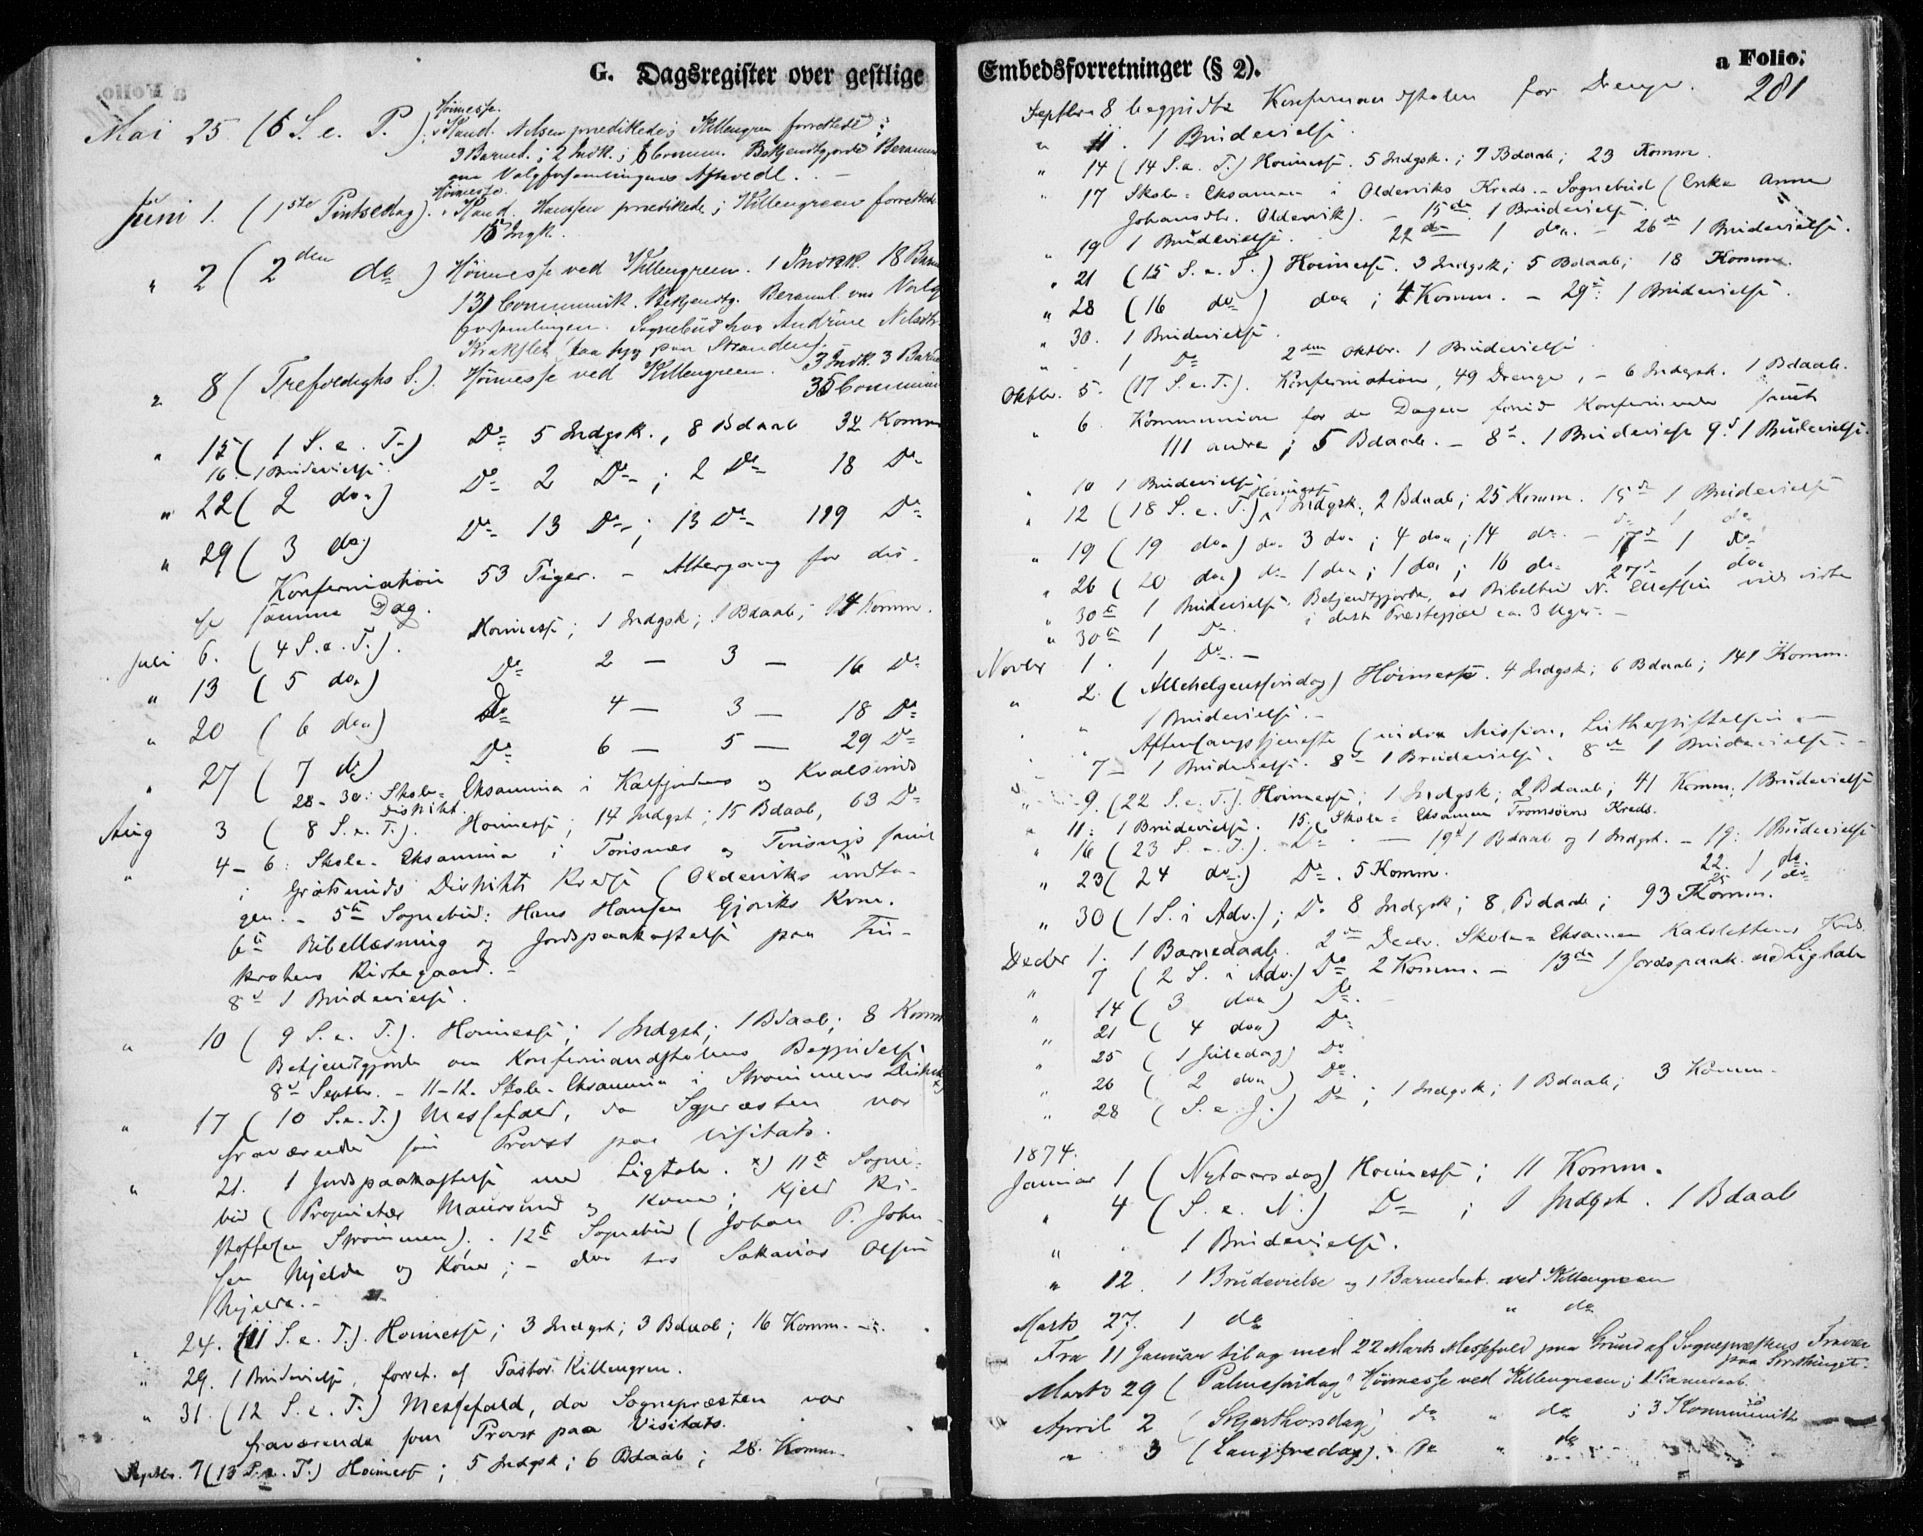 G. Dagsregister over gestlige
Mai 25. (6 S. e. P.). Høimesse.
Kand. Nilsen prædikede; Killengreen forrettede;
3 Barned.; 2 Indk.; 6 Commun. Bekjendtgjorde Berammelse
om Valgforsamlingens Afhold. —
Juni 1. (1ste Pintsedag). Høimesse.
Kand. Hanssen prædikede; Killengreen forrettede
15 Ingk.
" 2 (2den do) Høimesse ved Killengreen. 1 Indk. 18 Barned.
131 Communik. Bekjendtg. Beramml. om Valg-
forsamlingen. Sognebud hos Andrine Nilsdtr.
Krakslet, laa syg paa Stranden.
" 8 (Trefoldighs S.). Høimesse ved Killengreen. 3 Indk. 3 Barned.
35 Commun.
" 15 (1 S. e. T.) Do 5 Indgsk., 8 Bdaab 32 Komm
16. 1 Brudevielse.
" 22 (2 do) Do 2 Do; 2 Do 18 Do
" 29 (3 do) Do 13 Do; 13 Do 119 Do
Konfirmation 53 Piger. — Altergang for dis-
se samme Dag.
Juli 6. (4 S. e. T.). Høimesse; 1 Indgsk; 1 Bdaab; 14 Komm.
" 13 (5 do) Do 2 — 3 — 16 Do
" 20 (6 do) Do 4 — 3 — 18 Do
" 27 (7 do) Do 6 — 5 — 29 Do
28-30: Skole-Eksamina i Kalfjordens og Kvalsunds
Distrikt.
Aug 3 (8 S. e. T.). Høimesse; 14 Indgsk; 15 Bdaab, 63 Do
" 4-6: Skole-Eksamina i Tonsnæs og Finsnæs samt
i Grøtsunds Distrikts Kredse (Olderviks undta-
gen. — 5te Sognebud: Hans Hansen Gjøviks Kone.
6te Bibellæsning og Jordspaakastelse paa Fin-
krokens Kirkegaard. —
8de 1 Brudevielse.
" 10 (9 S. e. T.). Høimesse; 1 Indgsk; 1 Bdaab; 8 Komm
Bekjendtgjorde om Konfirmandskolens Begyndelse
8de Septbr. — 11-12. Skole-Eksamina i Strømmens Distrikt x)
" 17 (10 S. e. T.) Messefald, da Sgpræsten var
fraværende som Provst paa Visitats.
" 21. 1 Jordspaakastelse med Ligtale. x) 11te Sogne-
bud (Proprietær Maursund og Kone; Kjeld Kri-
stoffersen Strømmen). - 12te Sognebud (Johan P. Johan-
sen Mjelde og Kone; — do hos Sakarias Olsen
Mjelde. —
" 24. (11 S. e. T.). Høimesse; 3 Indgsk; 3 Bdaab; 16 Komm. —
" 29. 1 Brudevielse, forret. af Pastor Killengreen.
" 31. (12 S. e. T.) Messefald, da Sognepræsten var
fraværende som Provst paa Visitats.
Septbr. 7 (13 S. e. T.) Høimesse; 5 Indgsk; 6 Bdaab; 28. Komm.
Embedsforretninger (§ 2). a Folio.
281
Septbr 8 begyndte Konfirmandskolen for Drenge.
" 11. 1 Brudevielse.
" 14 (14 S. e. T.) Høimesse. 5 Indgsk.; 7 Bdaab; 23 Komm.
" 17 Skole-Eksamen i Olderviks Kreds. — Sognebud (Erika Anna
Johansdtr. Oldervik). — 15de 1 Brudevielse.
" 19 1 Brudevielse. 22de 1 do. — 26de 1 Brudevielse.
" 21 (15 S. e. T.) Høimesse. 3 Indgsk; 5 Bdaab; 18 Komm.
" 28 (16 do) do; 4 Komm. — 29de: 1 Brudevielse.
" 30. 1 Brudevielse.
" 1 Do 2den Oktbr. 1 Brudevielse
Oktbr. 5. (17 S. e. T.). Konfirmation, 49 Drenge, — 6 Indgsk. 1 Bdaab.
" 6. Kommunion for de Dagen forud Konfirmerede samt
111 andre; 5 Bdaab. — 8de. 1 Brudevielse 9de 1 Brudevielse.
" 10 1 Brudevielse.
" 12 (18 S. e. T.) Høimesse 1 Indgsk. 2 Bdaab; 25 Komm. 15de 1 Brudevielse
" 19 (19 do) do 3 do; 4 do; 14 do. — 17de 1 do
" 26 (20 do) do 1 do; 1 do; 16 do 27de 1 do
" 30te 1 Brudevielse. Bekjendtgjorde, at Bibelbud N. Ellefsen vilde virke
" 30te 1 Do. i dette Præstegjæld ca. 3 Uger. —
Novbr 1. 1 Do. —
" 2. (Allehelgensøndag) Høimesse. 4 Indgsk; 6 Bdaab; 141 Komm.
" 1 Brudevielse. —
" Aftensangstjeneste (indre Mission, Lutherstiftelsen. —
7 — 1 Brudevielse. 8de 1 Brudevielse. 8de 1 Brudevielse. —
" 9. (22 S. e. T.). Høimesse; 1 Indgsk; 2 Bdaab; 41 Komm; 1 Brudevielse
" 11: 1 Brudevielse. 15. Skole-Eksamen Tromsøens Kreds.
" 16 (23 S. e. T.). Do. — 19de 1 Bdaab og 1 Indgsk. — 19: 1 Brudevielse
" 23 (24 do.) Do. 5 Komm. 22. 1 do.
25 1 do.
" 30 (1 S. i Adv.); Do 8 Indgsk; 8 Bdaab; 93 Komm.
Decbr 1. 1 Barnedaab. 2den Decbr. Skole-Eksamen Kalslettens Kreds
" 7 (2 S. i Adv.) Do 2 Komm. — 13de 1 Jordspaak. med Ligtale
" 14 (3 do) Do. —
" 21 (4 do) Do
" 25 (1 Juledag) Do
" 26 (2 do) Do.
" 28 (S. e. J.) Do; 1 Indgsk; 1 Bdaab; 3 Komm.
1874.
Januar 1 (Nytaarsdag) Høimesse; 11 Komm.
" 4 (S. e. N.) Do; 1 Indgsk. 1 Bdaab
" " 1 Brudevielse.
" 12. 1 Brudevielse og 1 Barnedaab. ved Killengreen
Marts 27. 1 do " do
Fra 11 Januar til og med 22 Marts Messefald paa Grund af Sognepræstens Fravær
paa Storthinget.
Marts 29 (Palmesøndag) Høimesse ved Killengreen; 1 Barnedaab.
April 2 (Skjærthorsdag) do " do; 3 Kommunik
" 3 (Langfredag). do " do